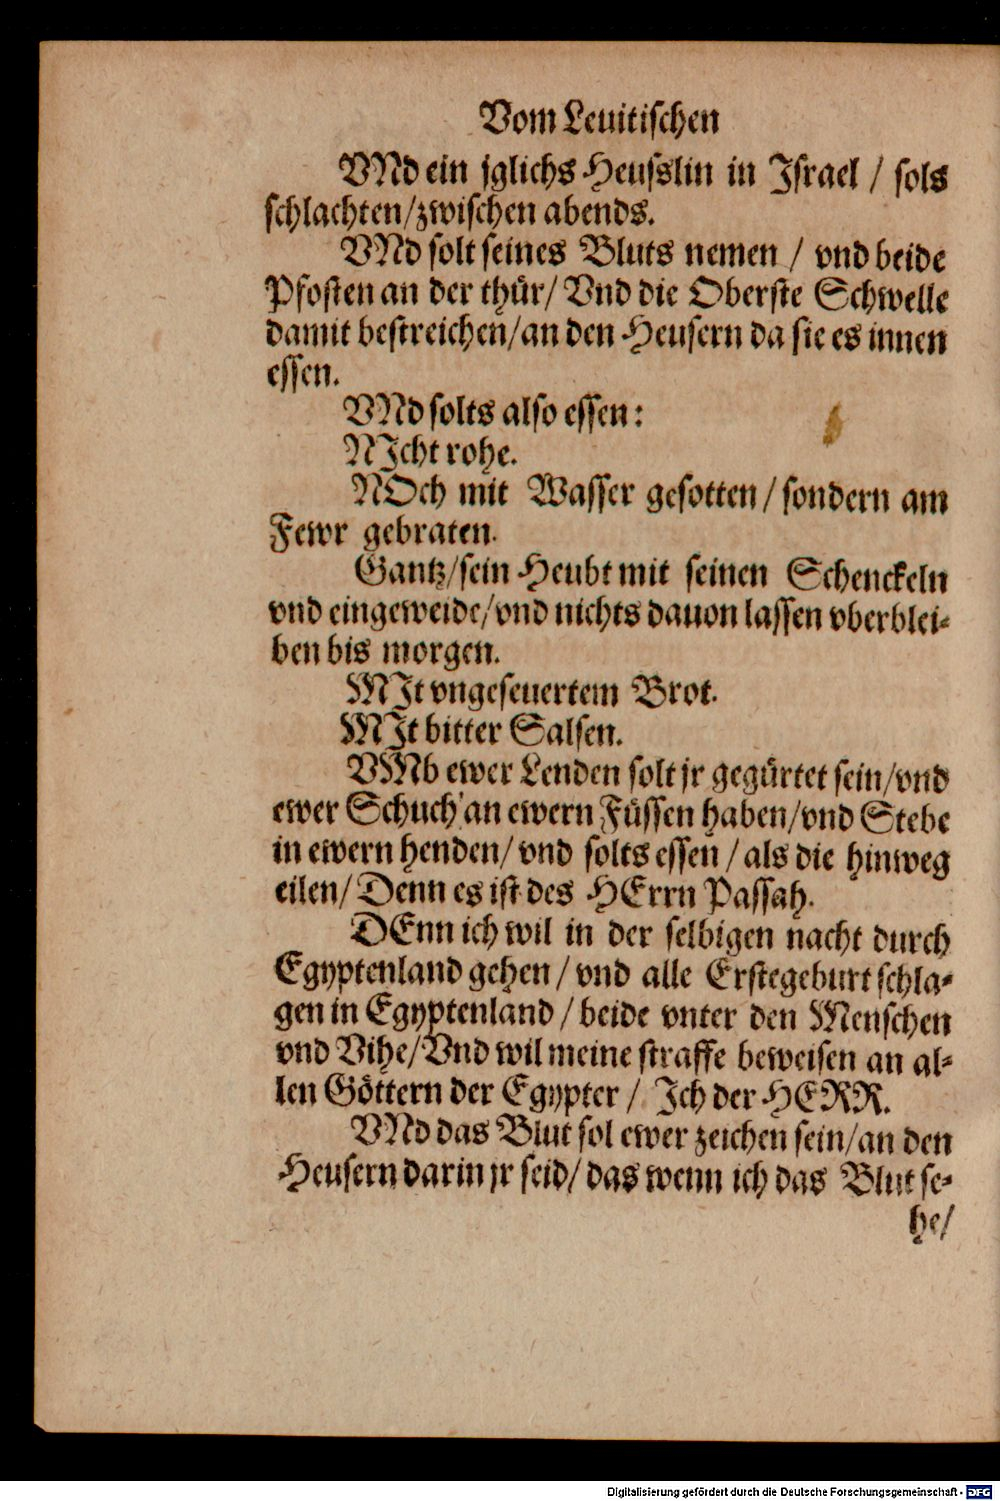 Vom Leuitischen
VNd ein jglichs Heusslin in Israel / sols
schlachten/zwischen abends.
VNd solt seines Bluts nemen / vnd beide
Pfosten an der thür/ Vnd die Oberste Schwelle
damit bestreichen/an den Heusern da sie es innen
essen.
VNd solts also essen:
NIcht rohe.
NOch mit Wasser gesotten/sondern am
Fewr gebraten.
Gantz/sein Heubt mit seinen Schenckeln
vnd eingeweide/vnd nichts dauon lassen vberblei-
ben bis morgen.
MIt vngeseuertem Brot.
MIt bitter Salsen.
VMb ewer Lenden solt jr gegürtet sein/vnd
ewer Schuch an ewern Füssen haben/vnd Stebe
in ewern henden/ vnd solts essen / als die hinweg
eilen/ Denn es ist des HErrn Passah.
DEnn ich wil in der selbigen nacht durch
Egyptenland gehen / vnd alle Erstegeburt schla-
gen in Egyptenland / beide vnter den Menschen
vnd Vihe/Vnd wil meine straffe beweisen an al-
len Göttern der Egypter / Ich der HERR.
VNd das Blut sol ewer zeichen sein/an den
Heusern darin jr seid/ das wenn ich das Blut se-
he/
Digitalisierung gefördert durch die Deutsche Forschungsgemeinschaft - DFG